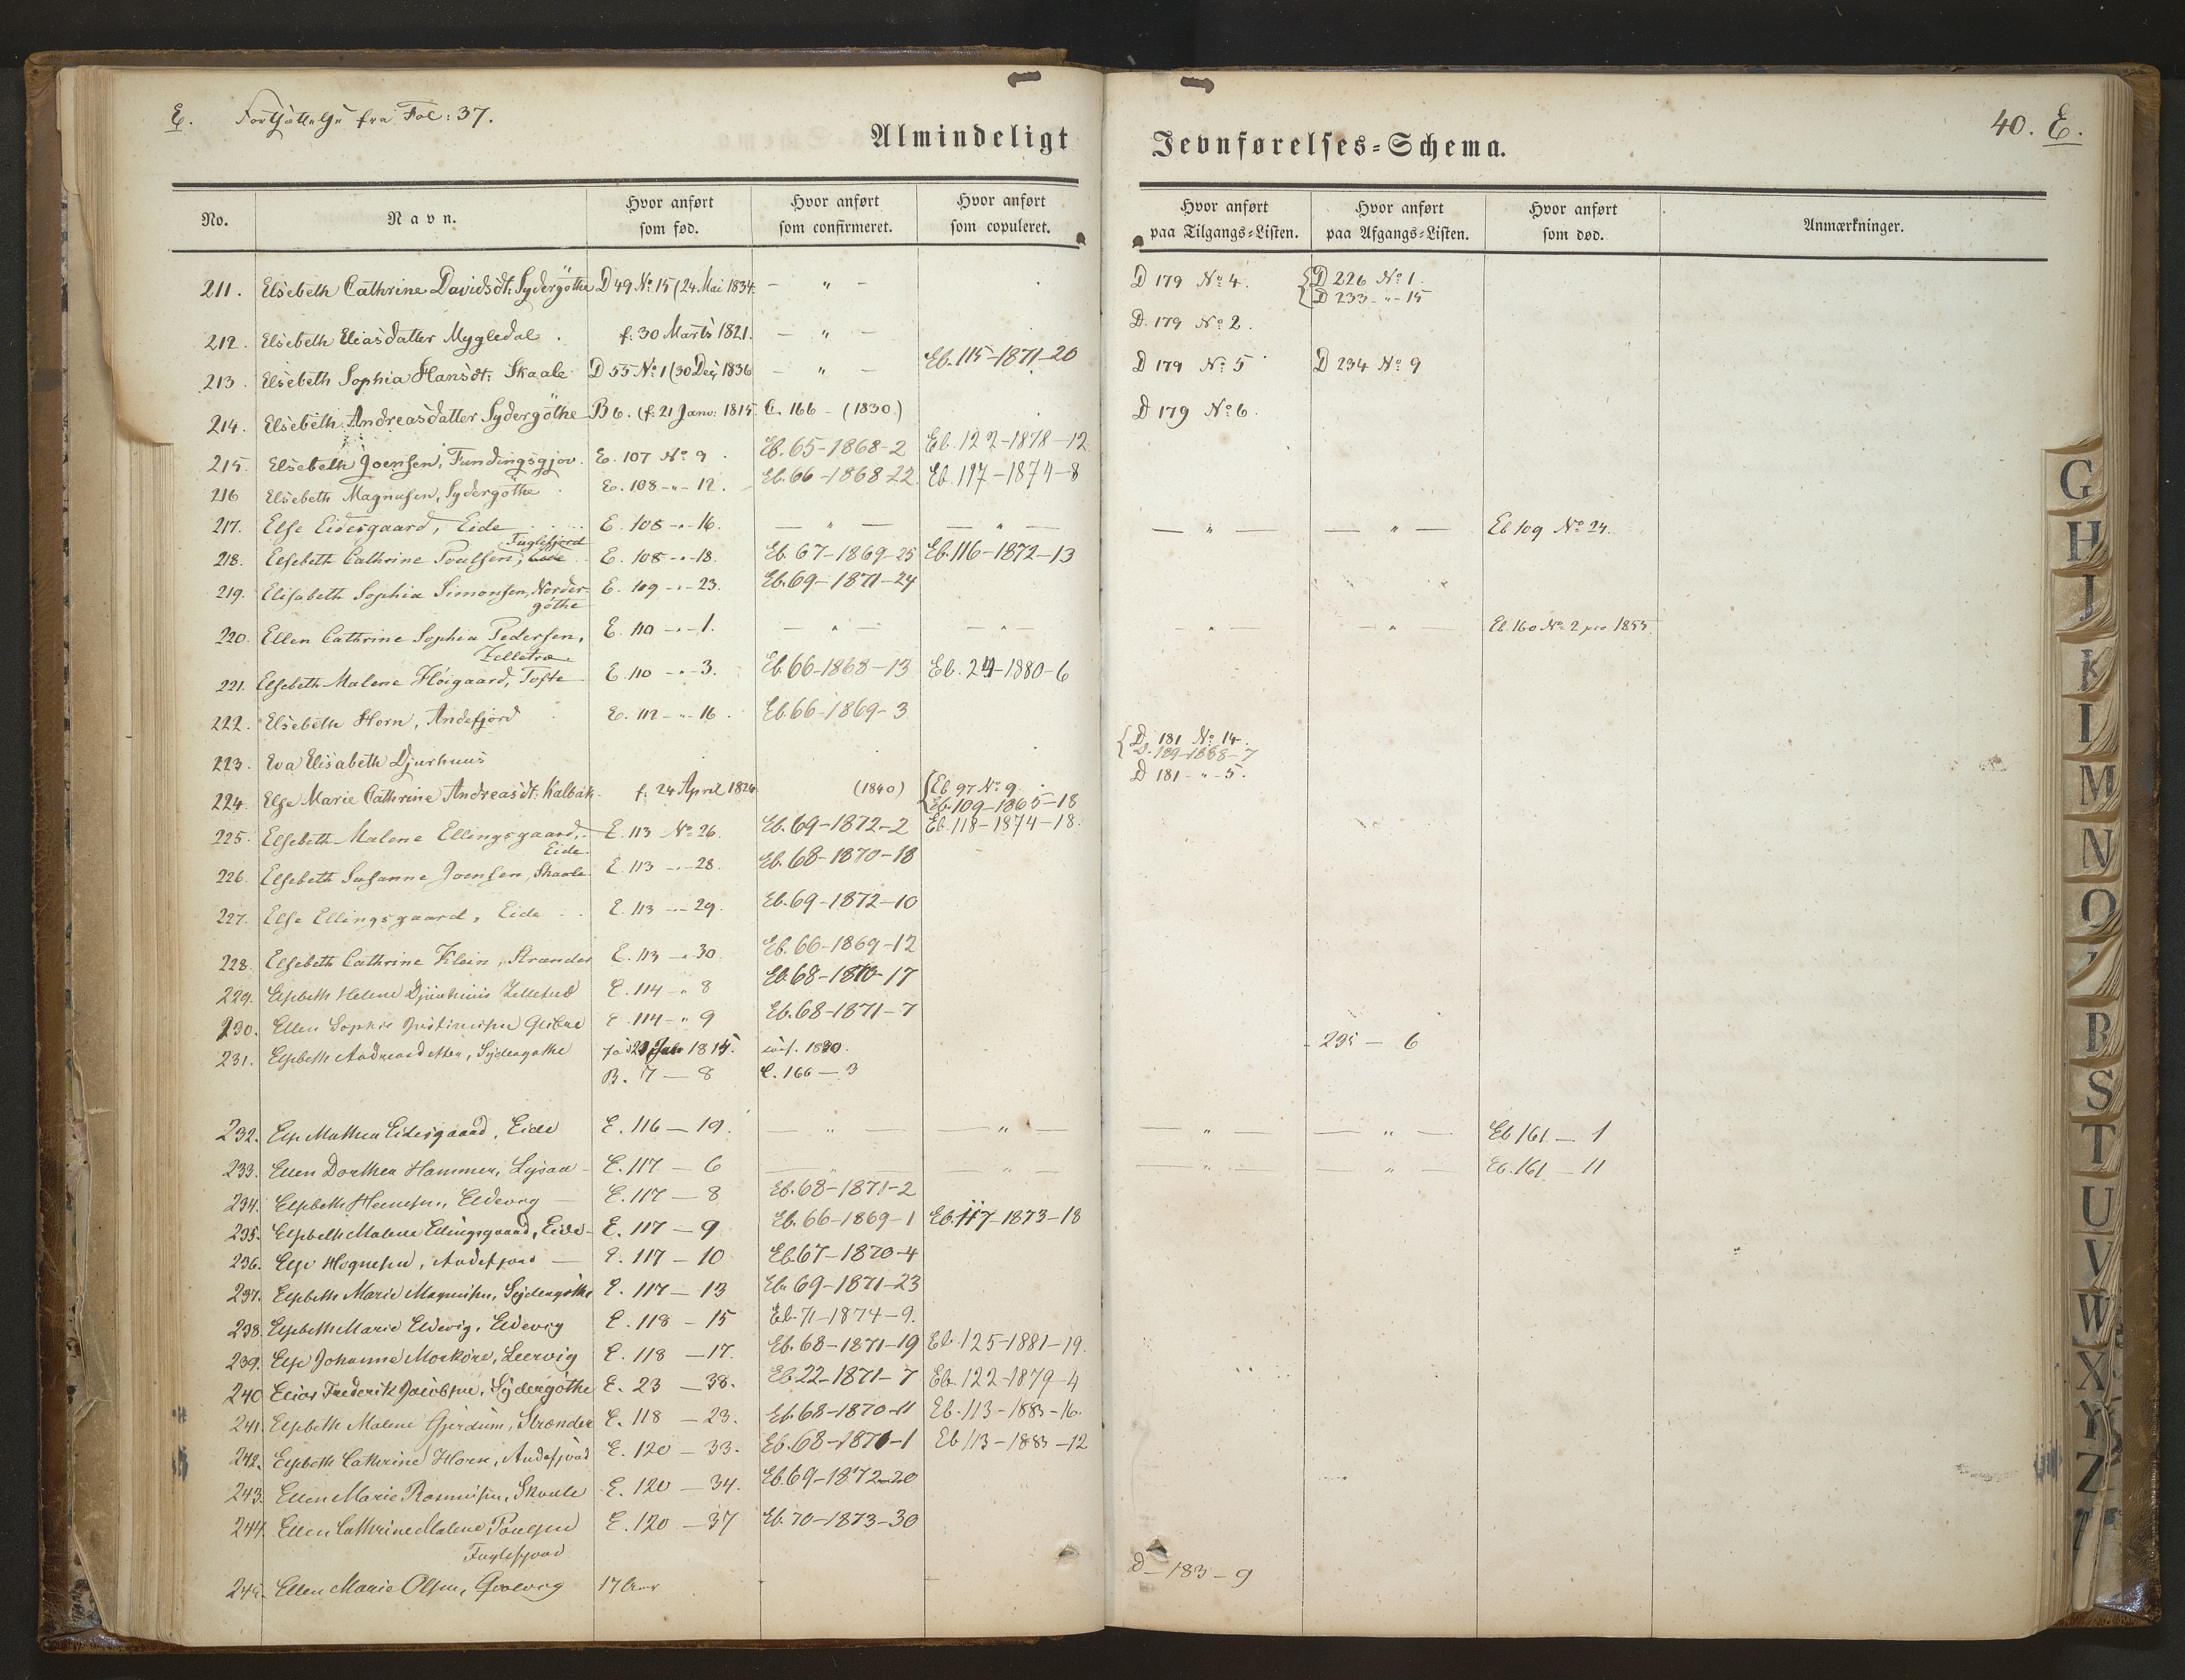 E. Fortsættelse fra Fol: 37.
40. E.
Almindeligt Jevnførelses=Schema.
No. Navn. Hvor anført som fød. Hvor anført som confirmeret. Hvor anført som copuleret. Hvor anført paa Tilgangs=Listen. Hvor anført paa Afgangs=Listen. Hvor anført som død. Anmærkninger.
211. Elsebeth Cathrine Davidsdt: Sydergöthe D 49 No 15 (24 Mai 1834. — " — D 179 No 4. { D 226 No 1.
{ D 233 - " - 15
212. Elsebeth Eliasdatter Mygledal. f: 30 Marts 1821. — " — D. 179 No 2.
213. Elsebeth Sophia Hansdt: Skaale D 55 No 1 (30 Dec: 1836 — " — Eb. 115-1871-20 D 179 No 5 D 234 No 9
214. Elsebeth Andreasdatter Sydergöthe B 6. (f: 21 Janv: 1815. C. 166 - (1830) D 179 No 6.
215. Elsebeth Joensen, Fundingsgjov. E. 107 No 9. Eb. 65-1868-2 Eb. 122-1878-12
216 Elsebeth Magnusen, Sydergöthe. E. 108 - " - 12. Eb. 66-1868-22. Eb. 117-1874-8
217. Else Eidesgaard, Eide E. 108 - " - 16. — " — — " — — " — — " — Eb 109 No 24.
Fuglefjord
218. Elsebeth Cathrine Poulsen, Eide E. 108 - " - 18. Eb. 67-1869-25 Eb. 116-1872-13
219. Elisabeth Sophia Simonsen, Norder-
göthe E. 109 - " - 23. Eb. 69-1871-24
220. Ellen Cathrine Sophia Pedersen,
Zelletræ. E. 110 - " - 1. — " — — " — — " — — " — Eb. 160 No 2 pro 1855.
221. Elsebeth Malene Höigaard, Tofte E. 110 - " - 3. Eb. 66-1868-13 Eb. 24-1880-6
222. Elsebeth Horn, Andefjord E. 112 - " - 16. Eb. 66-1869-3
223. Eva Elisabeth Djurhuus { D 181 No 14.
{ D. 189-1868-7
224. Else Marie Cathrine Andreasdt: Kalbak. f. 24 April 1826 (1840) { Eb 97 No 9. D 181 - " - 5.
{ Eb. 109-1865-18
225. Elsebeth Malene Ellingsgaard,
Eide. E. 113 No 26. Eb. 69-1872-2 Eb. 118-1874-18.
226. Elsebeth Susanne Joensen, Skaale E. 113 - " - 28. Eb. 68-1870-18
227. Else Ellingsgaard, Eide E. 113 - " - 29. Eb. 69-1872-10
228. Elsebeth Cathrine Klein, Strænder E. 113 - " - 30. Eb. 66-1869-12
229. Elsbeth Helene Djurhuus E. 114 - " 8 Eb. 68-1870-17
230. Ellen Sophie E. 114 - " 9 Eb. 68-1871-7
231. Elsbeth Andreasdatter, Sydergøthe 1815. conf. 1830. 235 — 6
B. 7 — 8 C. 166 — 3
232. Else Mathea Eidesgaard, Eide E. 116 — 19. — " — — " — — " — — " — Eb 161 — 1
233. Ellen Dorthea Hammer, E. 117 — 6 — " — — " — — " — — " — Eb. 161 — 11
234. Elsbeth Hansen, Eldevig — E. 117 — 8 Eb. 68-1871-2
235. Elsbeth Malene Ellingsgaard, Eide - E. 117 — 9 Eb. 66-1869-1 Eb. 117-1873-18
236. Else Hognesen, Andefjord — E. 117 — 10 Eb. 67-1870-4
237. Elsbeth Marie Magnusen, Sydergøthe E. 117 — 13 Eb. 69-1871-23
238. Elsbeth Marie Eldevig, Eldevig E. 118 - 15 Eb. 71-1874-9.
239. Else Johanne Morköre, Leervig E. 118 — 17. Eb. 68-1871-19 Eb. 125-1881-19.
240 Elias Frederik Jacobsen, Sydergöthe E. 23 — 38. Eb. 22-1871-7 Eb. 122-1879-4
241. Elsbeth Malene Gjerdum, Strænder E. 118 — 23. Eb. 68-1870-11 Eb. 113-1883-16.
242. Elsbeth Cathrine Horn, Andefjord E. 120 — 33. Eb. 68-1871-1 Eb 113-1883-12
243. Ellen Marie Rasmusen, Skaale E. 120 — 34. Eb. 69-1872-20
244. Ellen Cathrine Malene Poulsen
Fuglefjord E. 120 — 37 Eb. 70-1873-30
245. Ellen Marie Olsen, 17 Aar D — 183 — 9
G
H
J
K
L
M
N
O
R
S
T
U
V
W
X
Y
Z